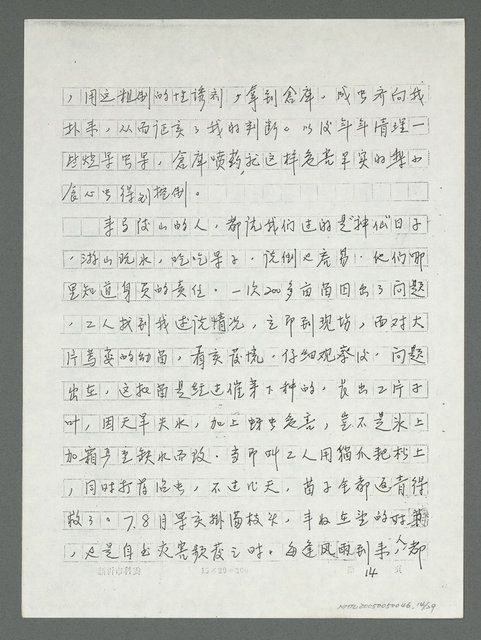 ，用这粗制的性诱剂，拿到仓库，成虫齐向我
扑来，从而证实了我的判断。以后年年清理一
些烂果虫果，仓库喷药，把这样危害果实的梨小
食心虫得到控制。
来马陵山的人，都说我们过的是"神仙"日子
，游山玩水，吃吃果子，说倒也容易，他们哪
里知道身负的责任。一次200多亩苗因出了问题
，工人找到我述说情况，立即到现场，面对大
片蔫萎的幼苗，有亥发慌，仔细观察后，问题
出在，这批苗是经过催芽下种的，长出2片子
叶，因天旱失水，加上蚜虫危害，岂不是冰上
加霜，严重缺水而致。当即叫工人用猫爪耙松土
，同时打药治虫，不过几天，苗子全部返青得
救了。7、8月果实排满枝头，丰收在望的时，
，也是自然灾害频发之时。每逢风雨到来，都
15×20=300
14 页
NMTL20050050046.14/29